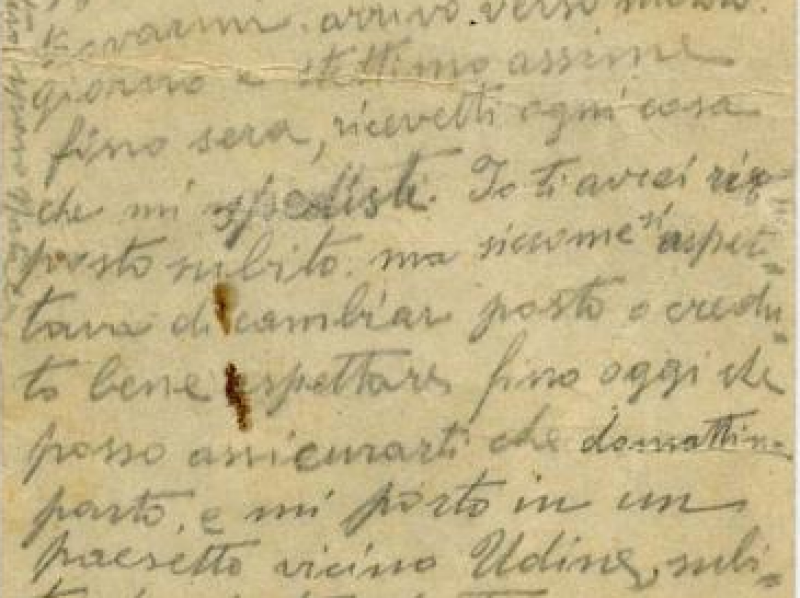 arrivo verso mezzo
giorno e stettimo assime
fino sera, ricevetti ogni cosa
che mi spedisti. Io ti avrei ris
posto subito. ma siccome si aspet-
tava di cambiar posto o credu-
to bene aspettare fino oggi che
posso assicurarti che domattina
parto, e mi porto in un
paesetto vicino Udine, subi-